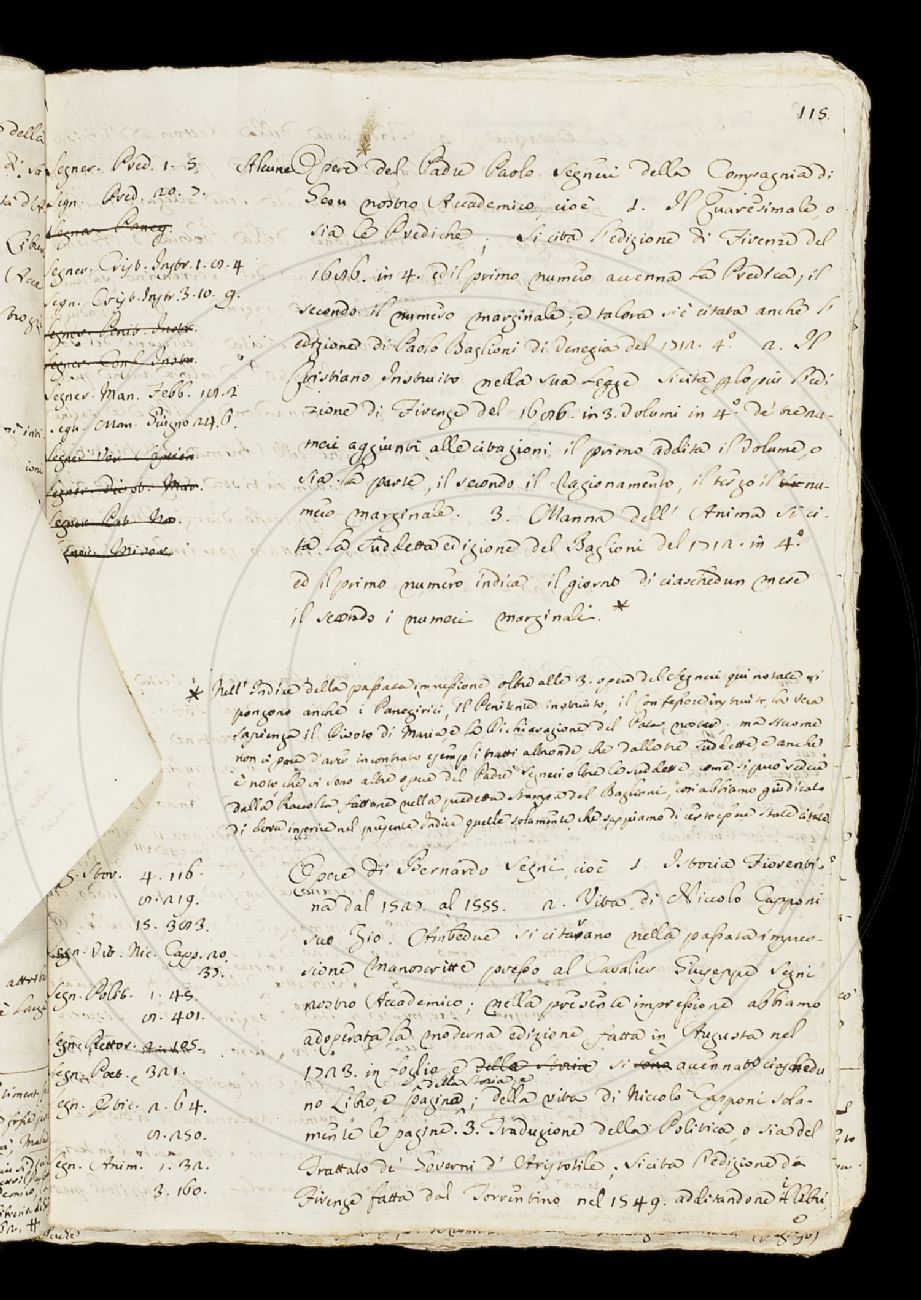 115.
Segner. Pred. 1. 5.
Segn. Pred. 20. 7.
Segner. Paneg.
Segner. Crist. Instr. 1. 9. 4
Segn. Crist. Instr. 3. 10. 9.
Segner. Penit. Instr.
Segner. Conf. Instr.
Segner. Man. Febb. 19. 2
Segn. Man. Giugno 24. 6.
Segner. Ver. Sapien.
Segner. Divot. Mar.
Segner. Pat. No.
Segner. Miser.
Alcune Opere del Padre Paolo Segneri della Compagnia di
Gesu nostro Accademico, cioè 1. Il Quaresimale, o
sia le Prediche; si cita l'edizione di Firenze del
in 4. ed il primo numero accenna la Predica; il
secondo il numero marginale; e talora si è citata anche l'
edizione di Paolo Baglioni di Venezia del 1712. 4.º 2. Il
Cristiano Instruito nella sua Legge si cita p lo più l'edi
zione di Firenze del in 3. Volumi in 4.º de' tre nu-
meri aggiunti alle citazioni il primo addita il Volume, o
sia la parte, il secondo il Ragionamento, il terzo il nu-
mero marginale. 3. Manna dell' Anima si ci-
ta la suddetta edizione del Baglioni del 1712. in 4.º
ed il primo numero indica il giorno di ciaschedun mese
il secondo i numeri marginali. *
* Nell' Indice della passata impressione oltre alle 3. opere del Segneri qui notate si
pongono anche i Panegirici, Il Penitente instruito, il Confessore instruito, la Vera
Sapienza il Divoto di Maria e la Dichiarazione del Pater noster; ma siccome
non ci pare d'aver incontrato esempli tratti altronde che dalle tre suddette, e anche
è noto che vi sono altre opere del Padre Segneri oltre le suddette come si può vedere
dalla Raccolta fattane nella predetta stampa del Baglioni, così abbiamo giudicato
di dover inserire nel presente Indice quelle solamente, che sappiamo di certo essere state citate.
S. Stor. 4. 116.
9. 219.
15. 393.
Segn. Vit. Nic. Capp. 20.
37.
Segn. Polit. 1. 45.
9. 401.
Segn. Rettor.
Segn. Poet. 321.
Segn. Etic. 2. 64.
9. 250.
Segn. Anim. 1. 32.
3. 160.
Opere di Bernardo Segni, cioè 1. Istoria Fiorenti-
na dal 1527. al 1555. 2. Vita di Niccolo Capponi
suo Zio. Ambedue si citavano nella passata impres-
sione manoscritte presso al Cavalier Giuseppe Segni
nostro Accademico; nella presente impressione abbiamo
adoperata la moderna edizione fatta in Augusta nel
1723. in foglio, e della Storia si accennato ciaschedu
della Storia, e
no Libro, e pagina; della vita di Niccolò Capponi sola-
mente le pagine. 3. Traduzione della Politica, o sia del
Trattato de' Governi d' Aristotile; si cita l'edizione di
Firenze fatta dal Torrentino nel 1549. additandone i libri,